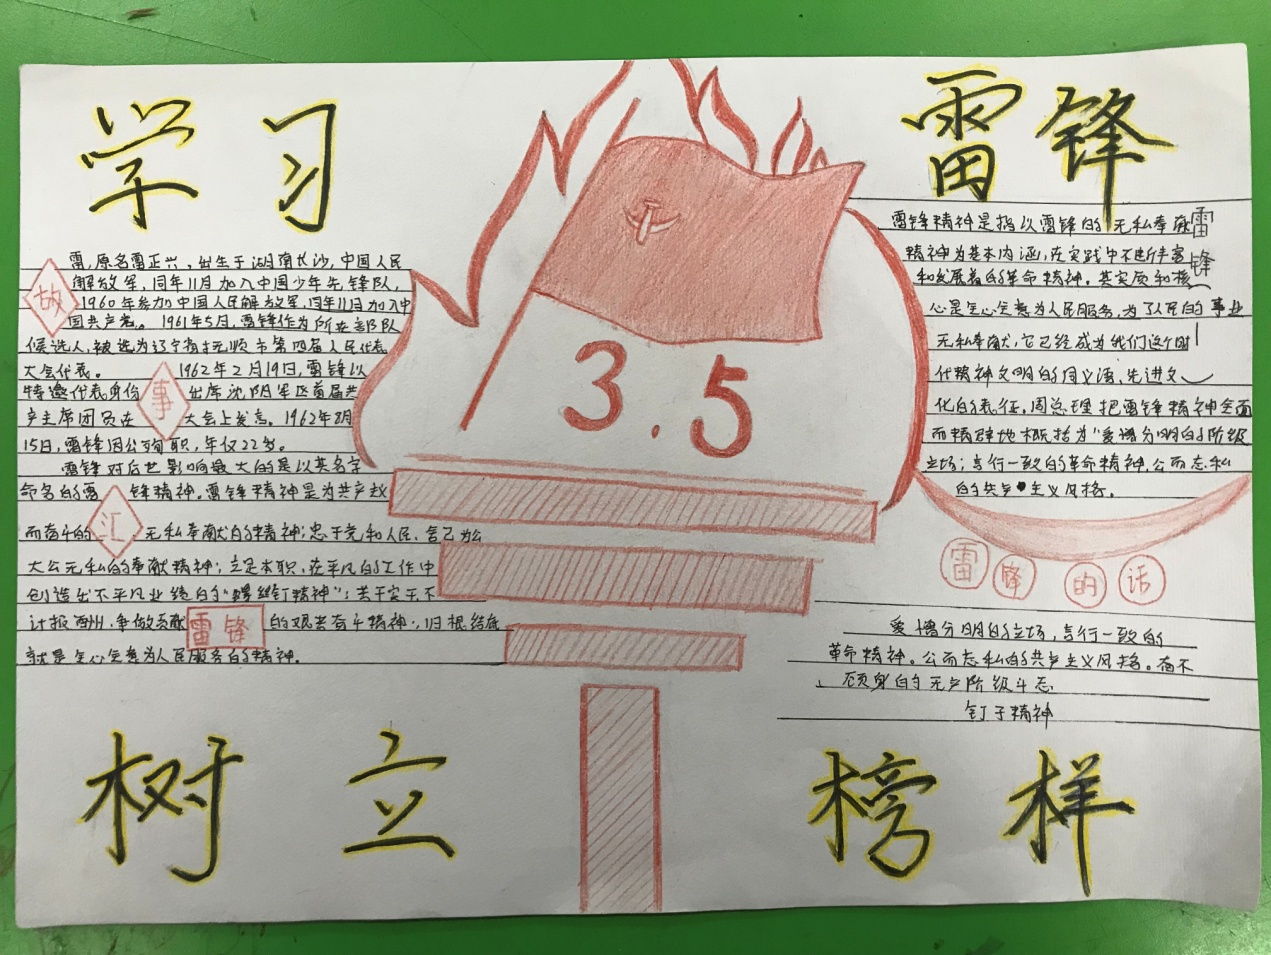 学习
雷锋
雷,原名雷正兴,出生于湖南长沙,中国人民
解放军,同年11月加入中国少年先锋队,
1960年参加中国人民解放军,同年11月加入中
国共产党。1961年5月,雷锋作为所在部队
候选人,被选为辽宁省抚顺市第四届人民代表
大会代表。1962年2月19日,雷锋以
特邀代表身份出席沈阳军区首届共
产主席团员在大会上发言。1962年8月
15日,雷锋因公殉职,年仅22岁。
雷锋对后世影响最大的是以英名字
命名的雷锋精神。雷锋精神是为共产
而奋斗的无私奉献的精神;忠于党和人民、舍己为公
大公无私的奉献精神;立足本职、在平凡的工作中
创造出不平凡业绩的"螺丝钉精神";苦干实干不
计报酬,争做贡献的艰苦奋斗精神,归根结底
就是全心全意为人民服务的精神。
故
事
汇
雷锋
3.5
雷锋精神是指以雷锋的无私奉献
精神为基本内涵,在实践中不断丰富
和发展着的革命精神。其实质和核
心是全心全意为人民服务,为了人民的事业
无私奉献,它已经成为我们这个时
代精神文明的同义语,先进文
化的表征。周总理把雷锋精神全面
而精辟地概括为"爱憎分明的阶级
立场;言行一致的革命精神,公而忘私
的共产主义风格。
雷
锋
雷锋的话
爱憎分明的立场,言行一致的
革命精神。公而忘私的共产主义风格。奋不
顾身的无产阶级斗志
钉子精神
树立
榜样